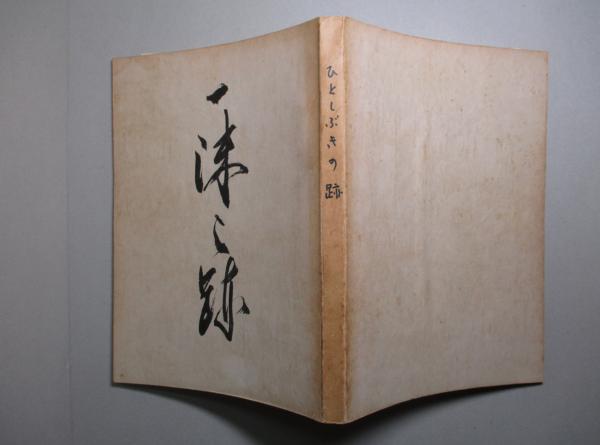 一沫之跡
ひとしぶきの跡